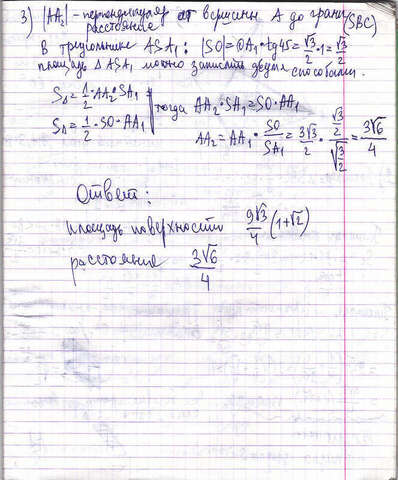 3) |AA₂| - перпендикуляр от вершины A до грани (SBC)
расстояние
В треугольнике ASA₁: |SO|=OA₁·tg45=√3/2·1=√3/2
площадь ΔASA₁ можно записать двумя способами.
S_Δ=1/2·AA₂·SA₁
S_Δ=1/2·SO·AA₁
тогда AA₂·SA₁=SO·AA₁
AA₂=AA₁·SO/SA₁=3√3/2·(√3/2)/(√(3/2))=3√6/4
Ответ:
площадь поверхности 9√3/4(1+√2)
расстояние 3√6/4